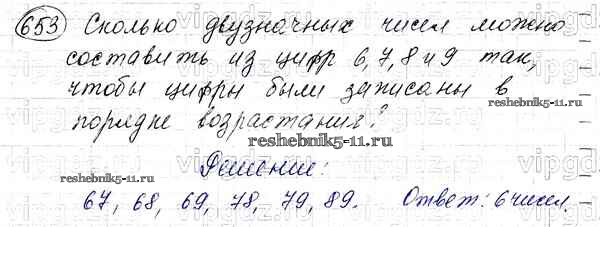 653 Сколько двузначных чисел можно
составить из цифр 6, 7, 8 и 9 так,
чтобы цифры были записаны в
reshebnik5-11.ru
порядке возрастания?
reshebnik5-11.ru
Решение:
reshebnik5-11.ru
67, 68, 69, 78, 79, 89. Ответ: 6 чисел.